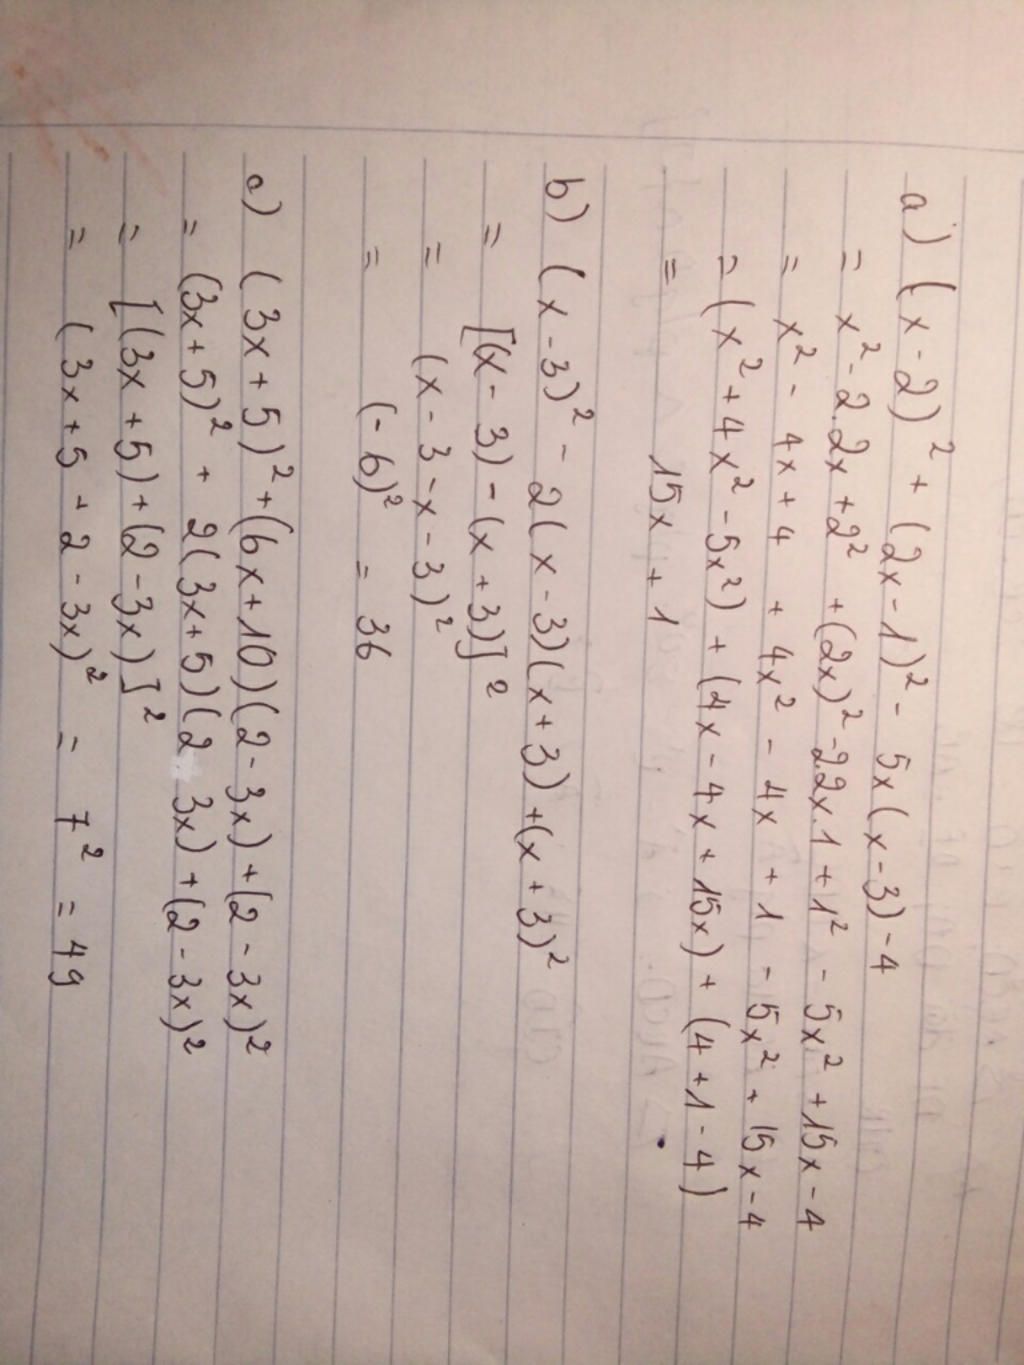 a) (x - 2)² + (2x - 1)² - 5x(x - 3) - 4
= x² - 2.2x + 2² + (2x)² - 2.2x.1 + 1² - 5x² + 15x - 4
= x² - 4x + 4 + 4x² - 4x + 1 - 5x² + 15x - 4
= (x² + 4x² - 5x²) + (4x - 4x + 15x) + (4 + 1 - 4)
= 15x + 1
b) (x - 3)² - 2(x - 3)(x + 3) + (x + 3)²
= [(x - 3) - (x + 3)]²
= (x - 3 - x - 3)²
= (- 6)² = 36
c) (3x + 5)² + (6x + 10)(2 - 3x) + (2 - 3x)²
= (3x + 5)² + 2(3x + 5)(2 3x) + (2 - 3x)²
= [(3x + 5) + (2 - 3x)]²
= (3x + 5 + 2 - 3x)² = 7² = 49